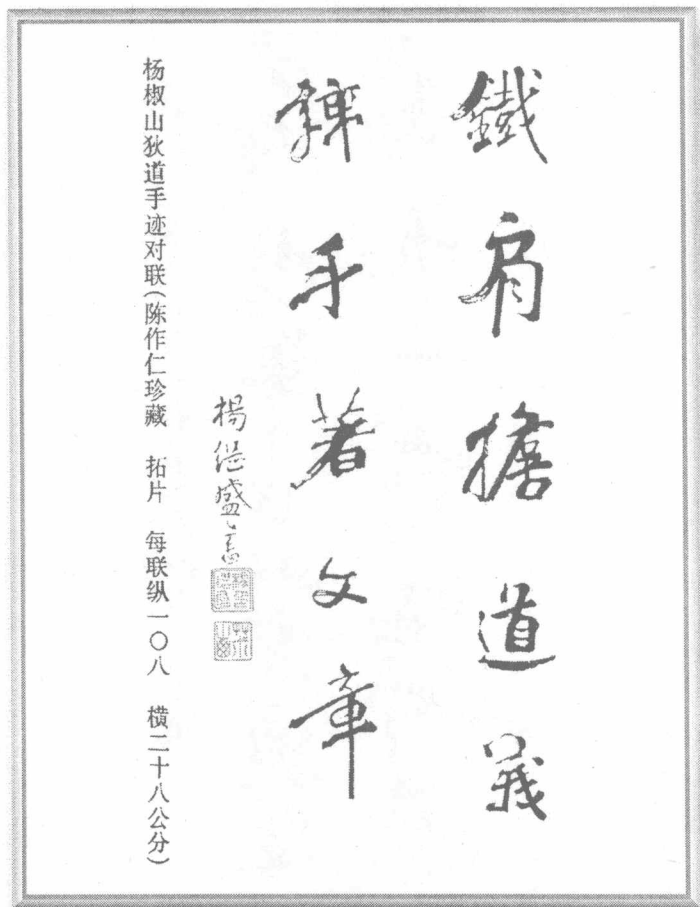 鐵肩擔道義
辣手著文章
楊継盛書
杨椒山狄道手迹对联(陈作仁珍藏 拓片 每联纵一〇八 横二十八公分)